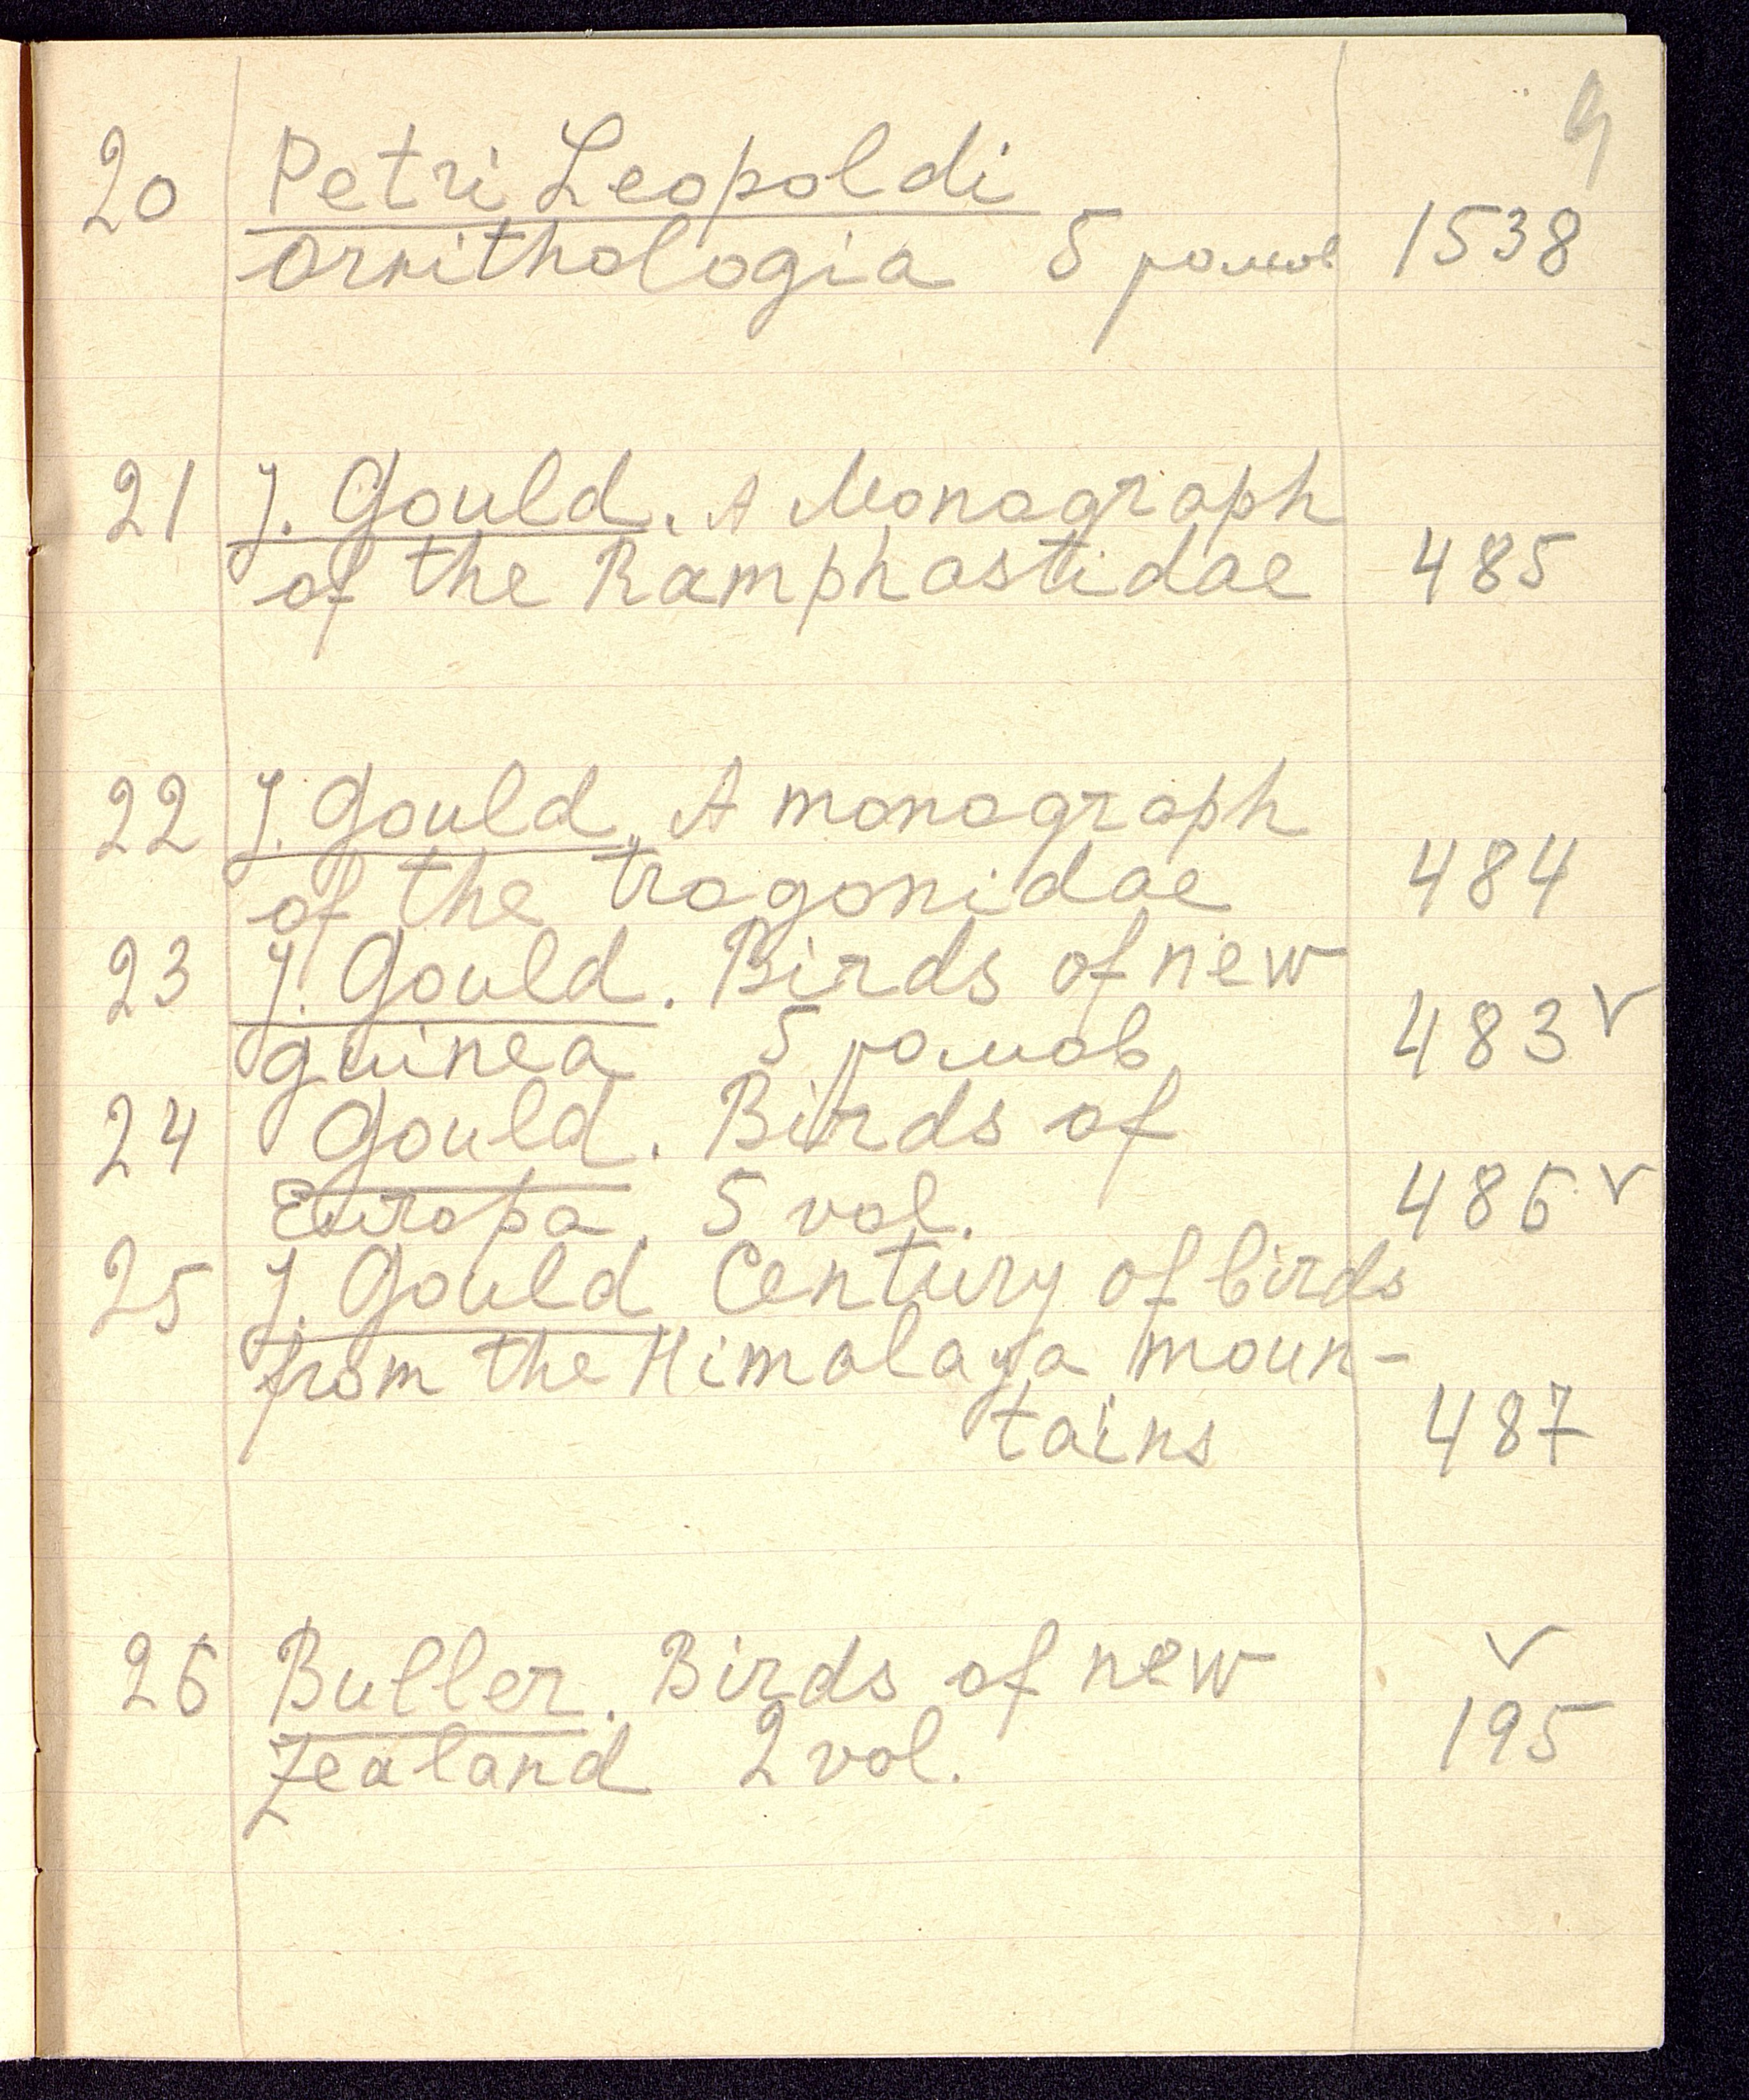 9
20 Petri Leopoldi
Ornithologia 5 томов 1538
21 J. Gould. A Monograph
of the Ramphastidae 485
22 J. Gould. A monograph
of the trogonidae 484
23 J. Gould. Birds of new
guinea 5 томов 483 ✓
24 Gould. Birds of
Europa. 5 vol. 486 ✓
25 J. Gould Century of birds
from the Himalaya moun-
tains 487
26 Buller. Birds of new ✓
Zealand 2 vol. 195